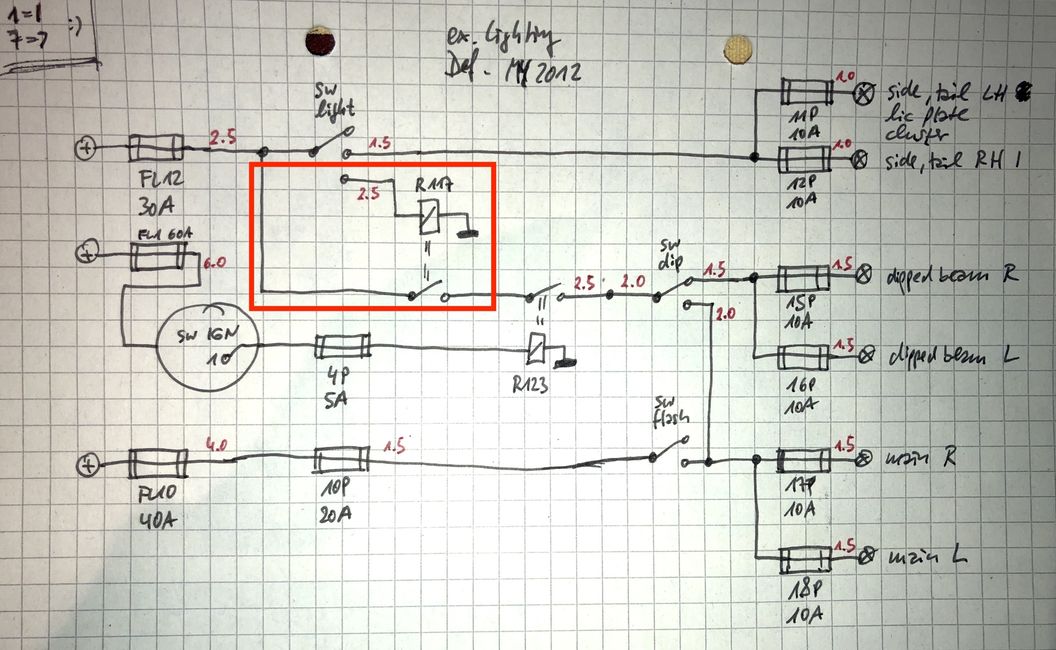 1=1
7=7 :)
ex. Lighting
Def. MY 2012
SW
light
2.5
1.5
FL12
30A
1.0
11P
10A
side, tail LH
lic plate
cluster
1.0
12P
10A
side, tail RH
2.5
R117
FL1 60A
6.0
SW IGN
10
4P
5A
R123
2.5
2.0
SW
dip
1.5
2.0
1.5
15P
10A
dipped beam R
1.5
16P
10A
dipped beam L
FL10
40A
4.0
10P
20A
1.5
SW
flash
1.5
17P
10A
main R
1.5
18P
10A
main L